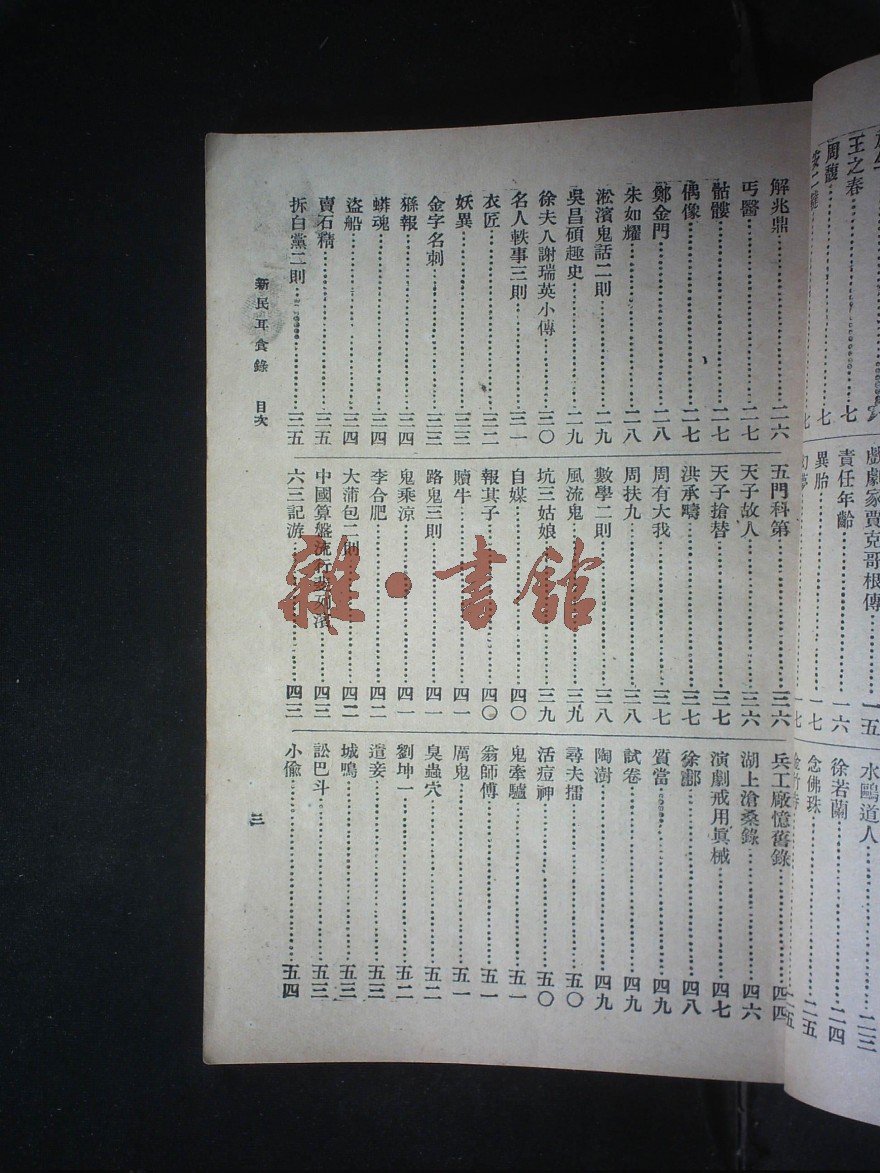 解兆鼎⋯⋯二六
丐醫⋯⋯二七
骷髏⋯⋯二七
偶像⋯⋯二七
鄭金門⋯⋯二八
朱如耀⋯⋯二八
淞濱鬼話二則⋯⋯二九
吳昌碩趣史⋯⋯二九
徐夫人謝瑞英小傳⋯⋯三〇
名人軼事三則⋯⋯三一
衣匠⋯⋯三二
妖異⋯⋯三三
金字名刺⋯⋯三三
報⋯⋯三四
蟒魂⋯⋯三四
盜船⋯⋯三四
賣石精⋯⋯三五
拆白黨二則⋯⋯三五
五門科第⋯⋯三六
天子故人⋯⋯三六
天子搶替⋯⋯三七
洪承疇⋯⋯三七
周有大我⋯⋯三七
周扶九⋯⋯三八
數學二則⋯⋯三八
風流鬼⋯⋯三九
坑三姑娘⋯⋯三九
自媒⋯⋯四〇
報其子⋯⋯四〇
贖牛⋯⋯四一
路鬼三則⋯⋯四一
鬼乘涼⋯⋯四一
李合肥⋯⋯四二
大蒲包二則⋯⋯四二
中國算盤流行⋯⋯四三
六三記游⋯⋯四三
兵工廠憶舊錄⋯⋯四四
湖上滄桑錄⋯⋯四六
演劇戒用眞械⋯⋯四七
徐酈⋯⋯四八
質當⋯⋯四九
試卷⋯⋯四九
陶澍⋯⋯四九
尋夫擂⋯⋯五〇
活痘神⋯⋯五〇
鬼牽驢⋯⋯五一
翁師傅⋯⋯五一
厲鬼⋯⋯五一
臭蟲穴⋯⋯五二
劉坤一⋯⋯五二
遣妾⋯⋯五三
城鳴⋯⋯五三
訟巴斗⋯⋯五三
小偸⋯⋯五四
新民耳食錄 目次
三
王之春⋯⋯七
周馥⋯⋯七
戲劇家賈克哥根傳⋯⋯一五
責任年齡⋯⋯一六
異胎⋯⋯一七
幻夢⋯⋯一七
水鷗道人⋯⋯二三
徐若蘭⋯⋯二四
念佛珠⋯⋯二五
雜·書館